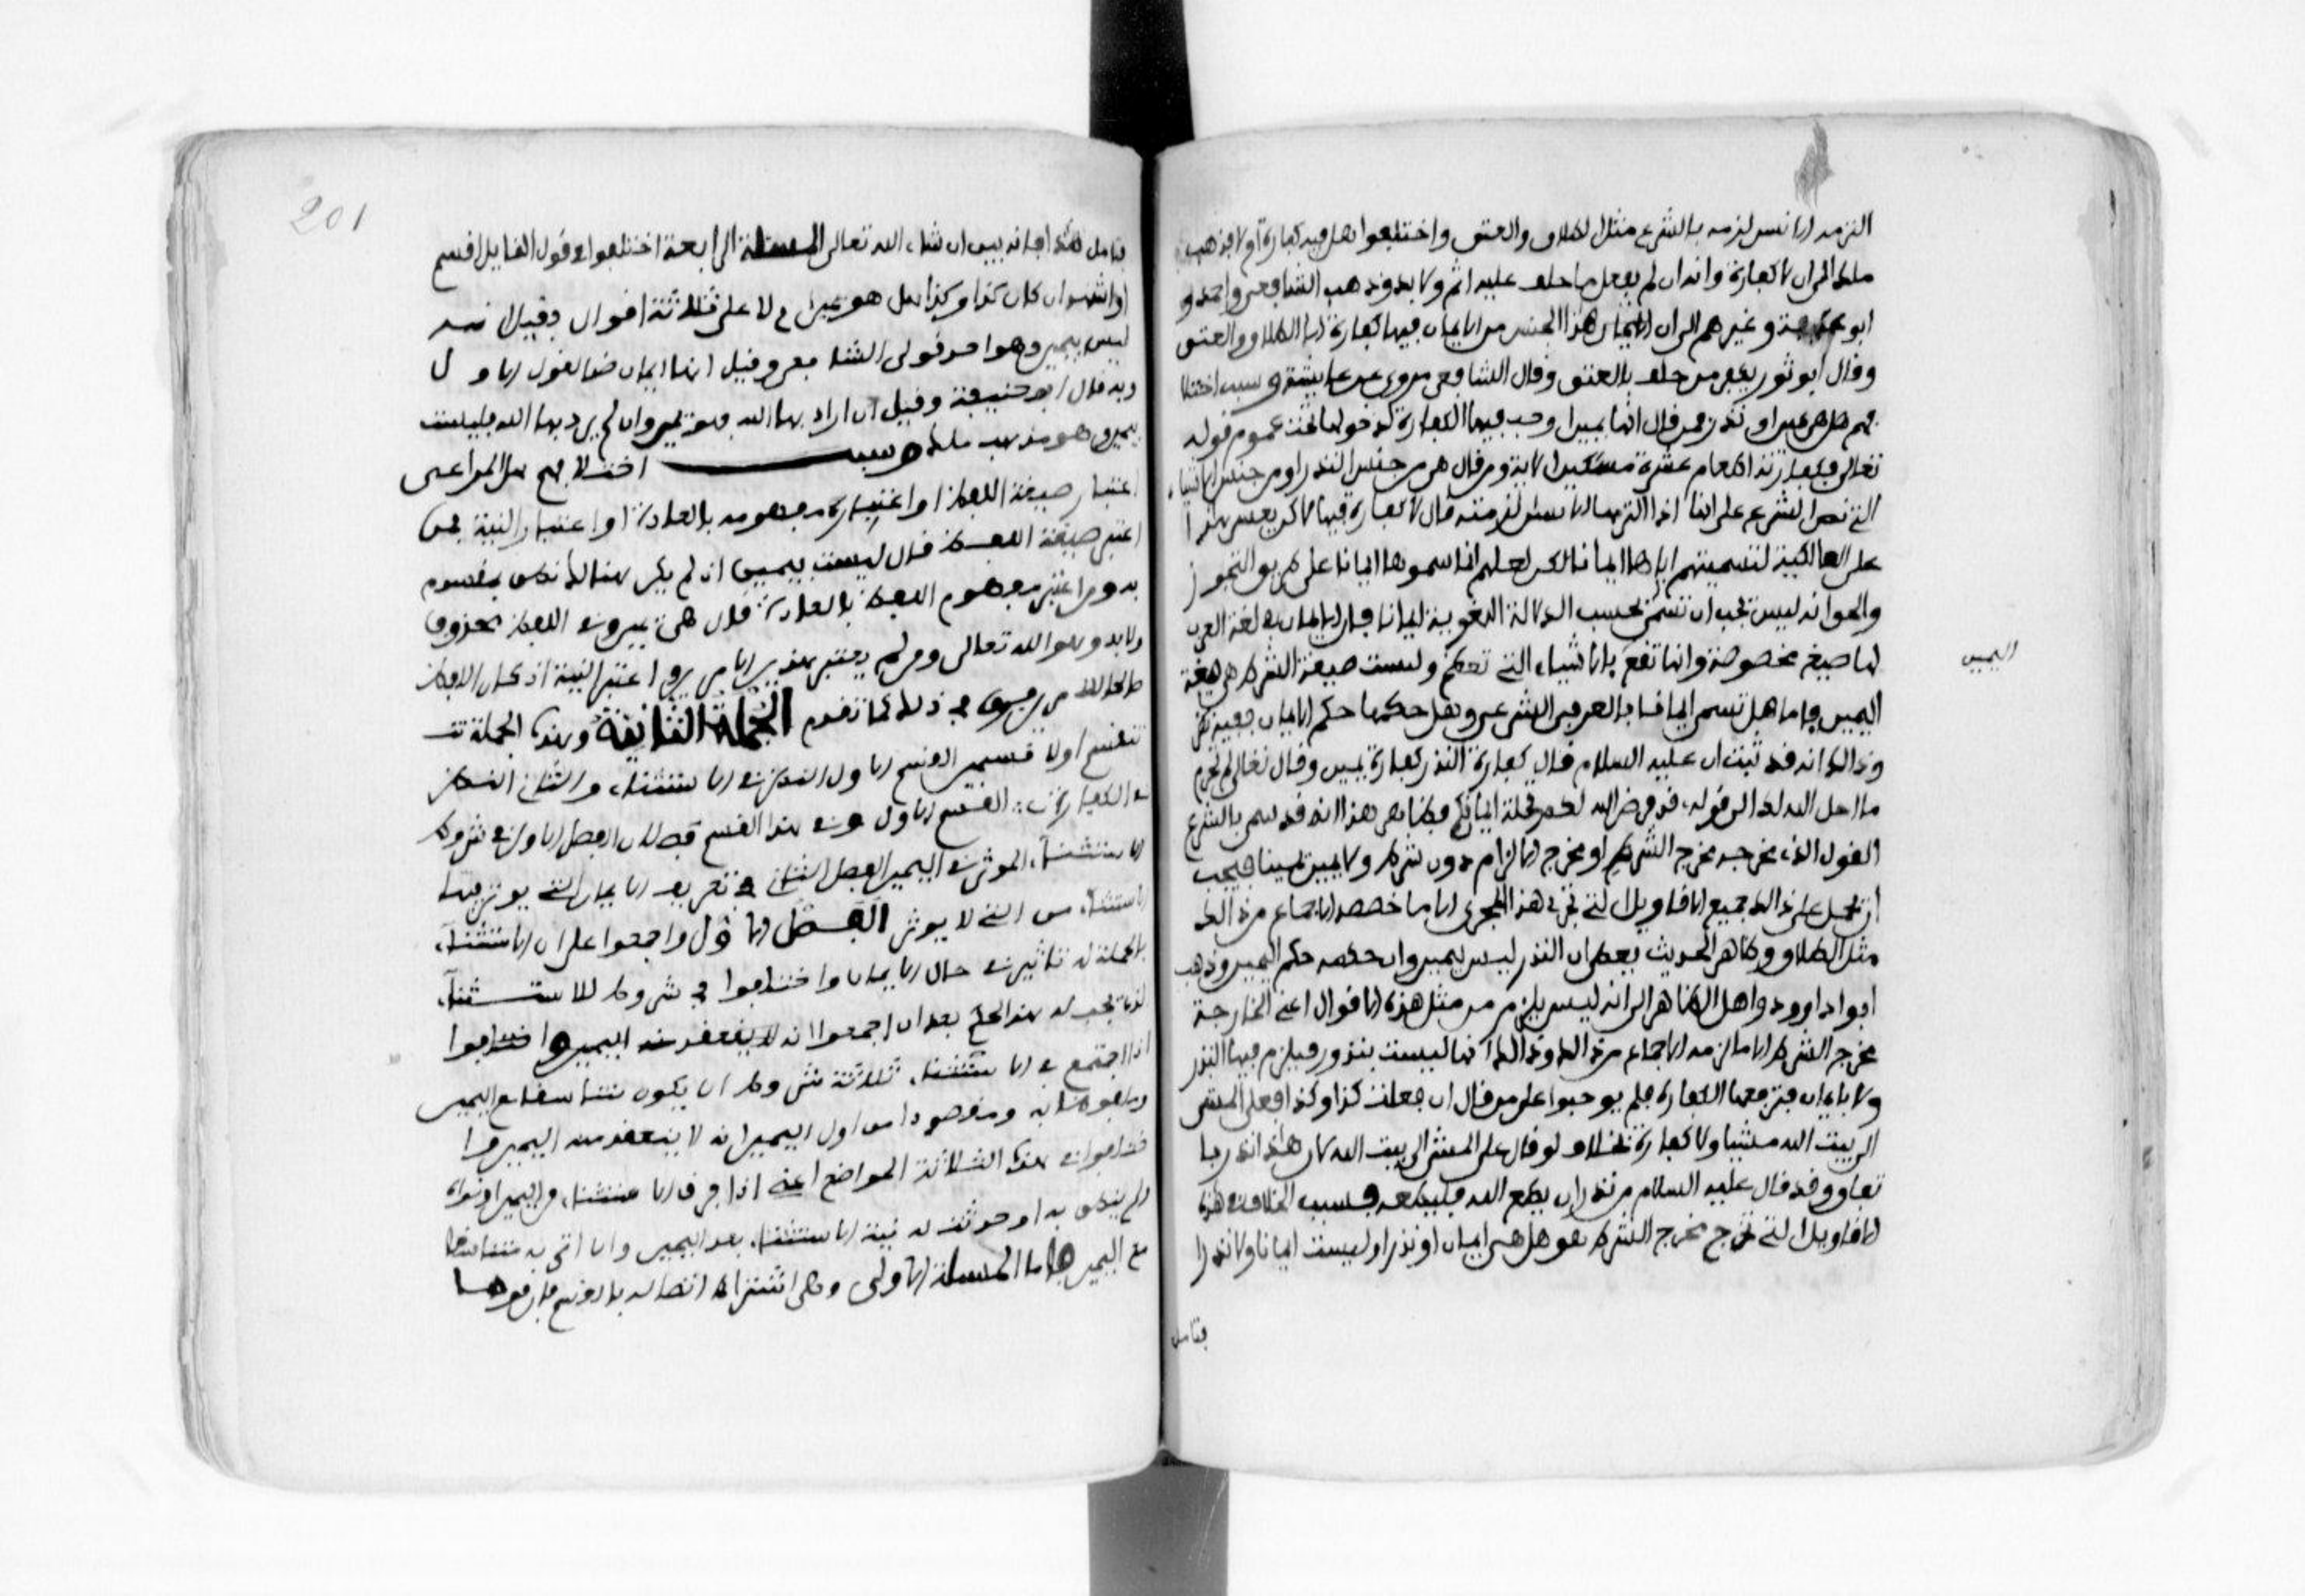 التزمه الانسان لزمه بالشرع مثل الطلاق والعتق واختلفوا هل فيه كفارة ام لا فذهب
ملك الى ان لا كفارة وانه ان لم يفعل ما حلف عليه اثم ولا بد وذهب الشافعي واحمد و
ابو عبيد وغيرهم الى ان هذا الجنس من الايمان فيها كفارة الا الطلاق والعتق
وقال ابو ثور يكفر من حلف بالعتق وقال الشافعي مروي عن عايشة وسبب اختلا
فهم هل هي يمين او نذر فمن قال انها يمين اوجب فيها الكفارة لدخولها تحت عموم قوله
تعالى فكفارته اطعام عشرة مسكين الاية ومن قال هي من جنس النذر اي من جنس الاشياء
التي نص الشرع على انها اذا التزمها الانسان لزمته قال لا كفارة فيها لاكن يعسر هذا
على المالكية لتسميتهم اياها ايمانا لكن لعلهم انما سموها ايمانا على طريق التجوز
والحق انه ليس يجب ان تسمى بحسب الدلالة اللغوية ايمانا فان الايمان في لغة العرب
لها صيغ مخصوصة وانما تقع بالاشياء التي تعظم وليست صيغة الشرط هي صيغة
اليمين
اليمين فاما هل تسمى ايمانا بالعرف الشرعي وهل حكمها حكم الايمان ففيه نظر
وذالك انه قد ثبت ان عليه السلام قال كفارة النذر كفارة يمين وقال تعالى لم تحرم
ما احل الله لك الى قوله قد فرض الله لكم تحلة ايمانكم فظاهر هذا انه قد سمى بالشرع
القول الذي مخرجه مخرج الشرط او مخرج الالزام دون شرط ولا يمين يمينا فيجب
ان تحمل على ذالك جميع الاقاويل التي تجري هذا المجرى الا ما خصصه الاجماع من ذالك
مثل الطلاق وظاهر الحديث يعطي ان النذر ليس بيمين وان حكمه حكم اليمين وذهب
ابو داوود واهل الظاهر الى انه ليس يلزم من مثل هذه الاقوال اعني الخارجة
مخرج الشرط الا ما الزمه الاجماع من ذالك وذالك انها ليست بنذور فيلزم فيها النذر
ولا بايمان فترفعها الكفارة فلم يوجبوا على من قال ان فعلت كذا وكذا فعلي المشي
الى بيت الله مشيا ولا كفارة بخلاف لو قال علي المشي الى بيت الله لان هذا نذر با
تفاق وقد قال عليه السلام من نذر ان يطع الله فليطعه فسبب الخلاف في هذه
الاقاويل التي تخرج مخرج الشرط هو هل هي ايمان او نذر او ليست ايمانا ولا نذرا
فتامل
201
فتامل هذا فانه بين ان شاء الله تعالى المسئلة الرابعة اختلفوا في قول القايل اقسم
او اشهد ان كان كذا وكذا هل هو يمين ام لا على ثلاثة اقوال فقيل انه
ليس بيمين وهو احد قولي الشافعي وقيل انها ايمان ضد القول الاول
وبه قال ابو حنيفة وقيل ان اراد بها الله فهو يمين وان لم يرد بها الله فليست
بيمين وهو مذهب ملك وسبب اختلافهم هل المراعى
اعتبار صيغة اللفظ او اعتبار مفهومه بالعادة او اعتبار النية فمن
اعتبر صيغة اللفظ قال ليست بيمين اذ لم يكن هنالك نطق بمقسوم
به ومن اعتبر مفهوم اللفظ بالعادة قال هي يمين وفي اللفظ محذوف
ولا بد وهو الله تعالى ومن لم يعتبر هذين الامرين واعتبر النية اذ كان اللفظ
صالحا للامرين فرق في ذلك كما تقدم الجملة الثانية وهذه الجملة تنـ
تنقسم اولا قسمين القسم الاول النظر في الاستثناء والثاني النظر
في الكفارات القسم الاول وفي هذا القسم فصلان الفصل الاول في شروط
الاستثناء الموثر في اليمين الفصل الثاني في تعريف الايمان التي يوثر فيها
الاستثناء من التي لا يوثر الفصل الاول واجمعوا على ان الاستثناء
بالجملة له تاثير في حل الايمان واختلفوا في شروط الاستثناء
الذي يجب له هذا الحكم بعد ان اجمعوا انه لا ينعقد منه اليمين واختلفوا
اذا اجتمع في الاستثناء ثلاثة شروط ان يكون متناسقا مع اليمين
وملفوظا به ومقصودا من اول اليمين انه لا ينعقد منه اليمين وا
ختلفوا في هذه الثلاثة المواضع اعني اذا فرق الاستثناء من اليمين او نواه
ولم ينطق به او حدثت له نية الاستثناء بعد اليمين وان اتى به متناسقا
مع اليمين فاما المسئلة الاولى وهي اشتراط اتصاله بالقسم فان قوما